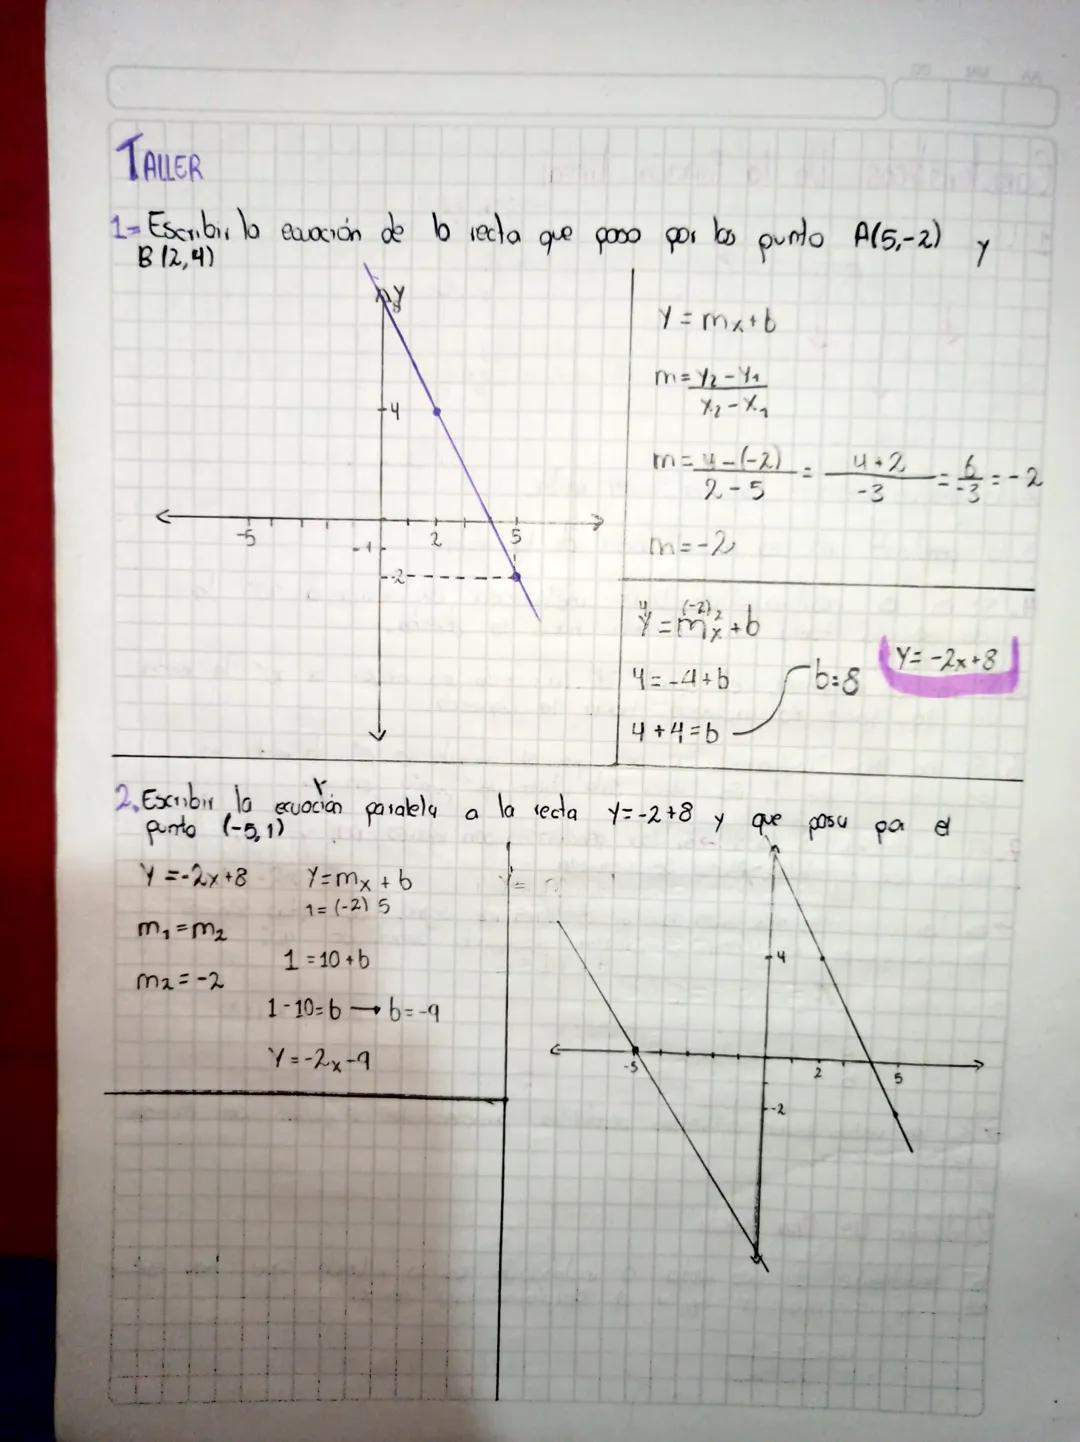 TALLER
1= Escribir la ecuación de la recta que pasa por los punto A(5,-2) y
B(2,4)
y
4
-5
2
5
-1
-2
Y = mx+b
m = y2 - y1
x2 - x1
m = 4-(-2) = 4+2 = 6 = -2
2-5 -3 -3
m = -2
4 (-2) 2
Y = mx + b
4 = -4+b
4+4=b
b=8
Y = -2x+8
2. Escribir la ecuación paralela a la recta Y=-2+8 y que pasa por el
punto (-5,1)
Y = -2x+8
m1 = m2
m2 = -2
Y = mx + b
1 = (-2) 5
1 = 10 + b
1-10=b → b=-9
Y = -2x-9
Y=
4
-5
2
5
-2